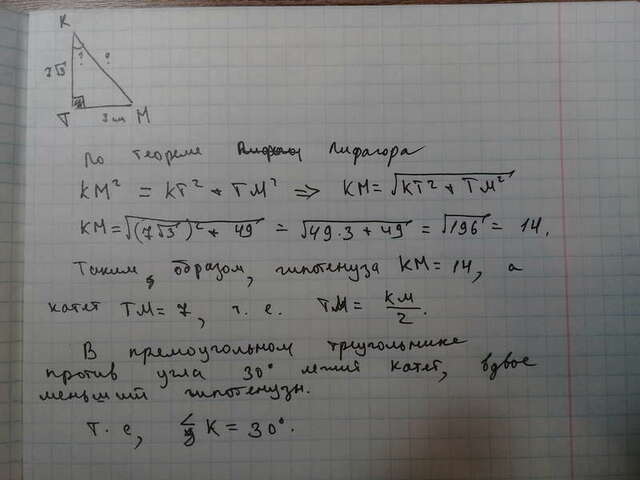 K
? ?
7√3
T 7 см M
По теореме Пифагора
KM² = KT² + TM² => KM = √(KT² + TM²)
KM = √((7√3)² + 49) = √(49·3 + 49) = √196 = 14.
Таким образом, гипотенуза KM = 14, а
катет TM = 7, т. е. TM = KM/2.
В прямоугольном треугольнике
против угла 30° лежит катет, вдвое
меньший гипотенузы.
Т. е, ∠K = 30°.